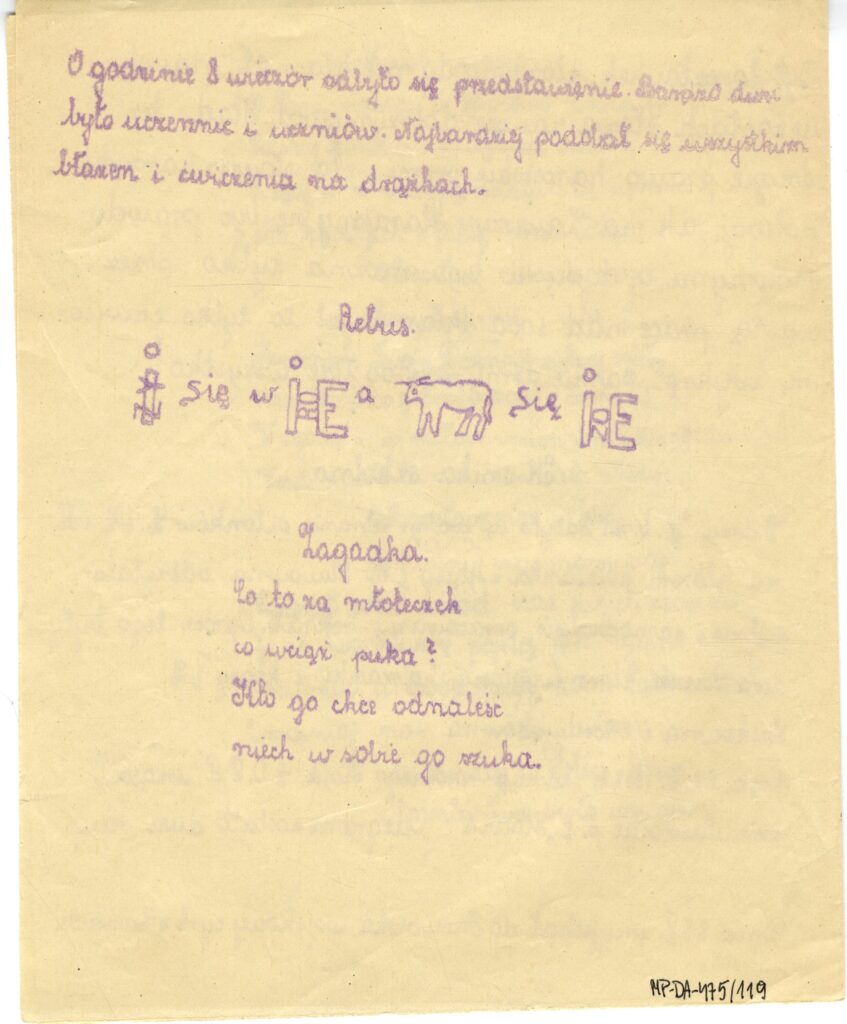 O godzinie 8 wieczór odbyło się przedstawienie. Bardzo dużo
było uczennic i uczniów. Najbardziej podobał się wszystkim
błazen i ćwiczenia na drążkach.
Rebus.
się w E a się E
Zagadka.
Co to za młoteczek
co wciąż puka?
Kto go chce odnaleść
niech w sobie go szuka.
MP-DA-475/119